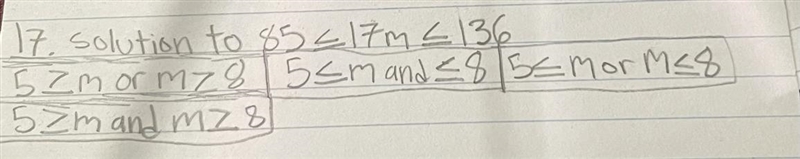 17. solution to 85 ≤ 17m ≤ 136
5 ≥ m or m ≥ 8 5 ≤ m and ≤ 8 5 ≤ m or M ≤ 8
5 ≥ m and m ≥ 8